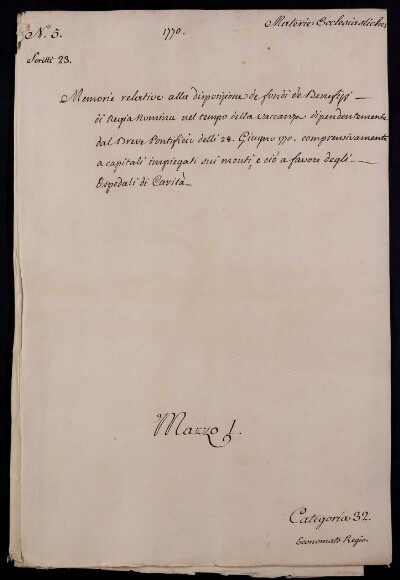 N.° 5.
1770.
Materie Ecclesiastiche
Scritti 23.
Memorie relative alla disposizione de fondi de Benefizj
di Regia Nomina nel tempo della vaccanza dipendentemente
dal Breve Pontificio delli 24. Giugno 1770. comprensivamente
a capitali impiegati sui monti, e ciò a favore degli
Ospedali di Carità
Mazzo I.
Categoria 32.
Economato Regio.